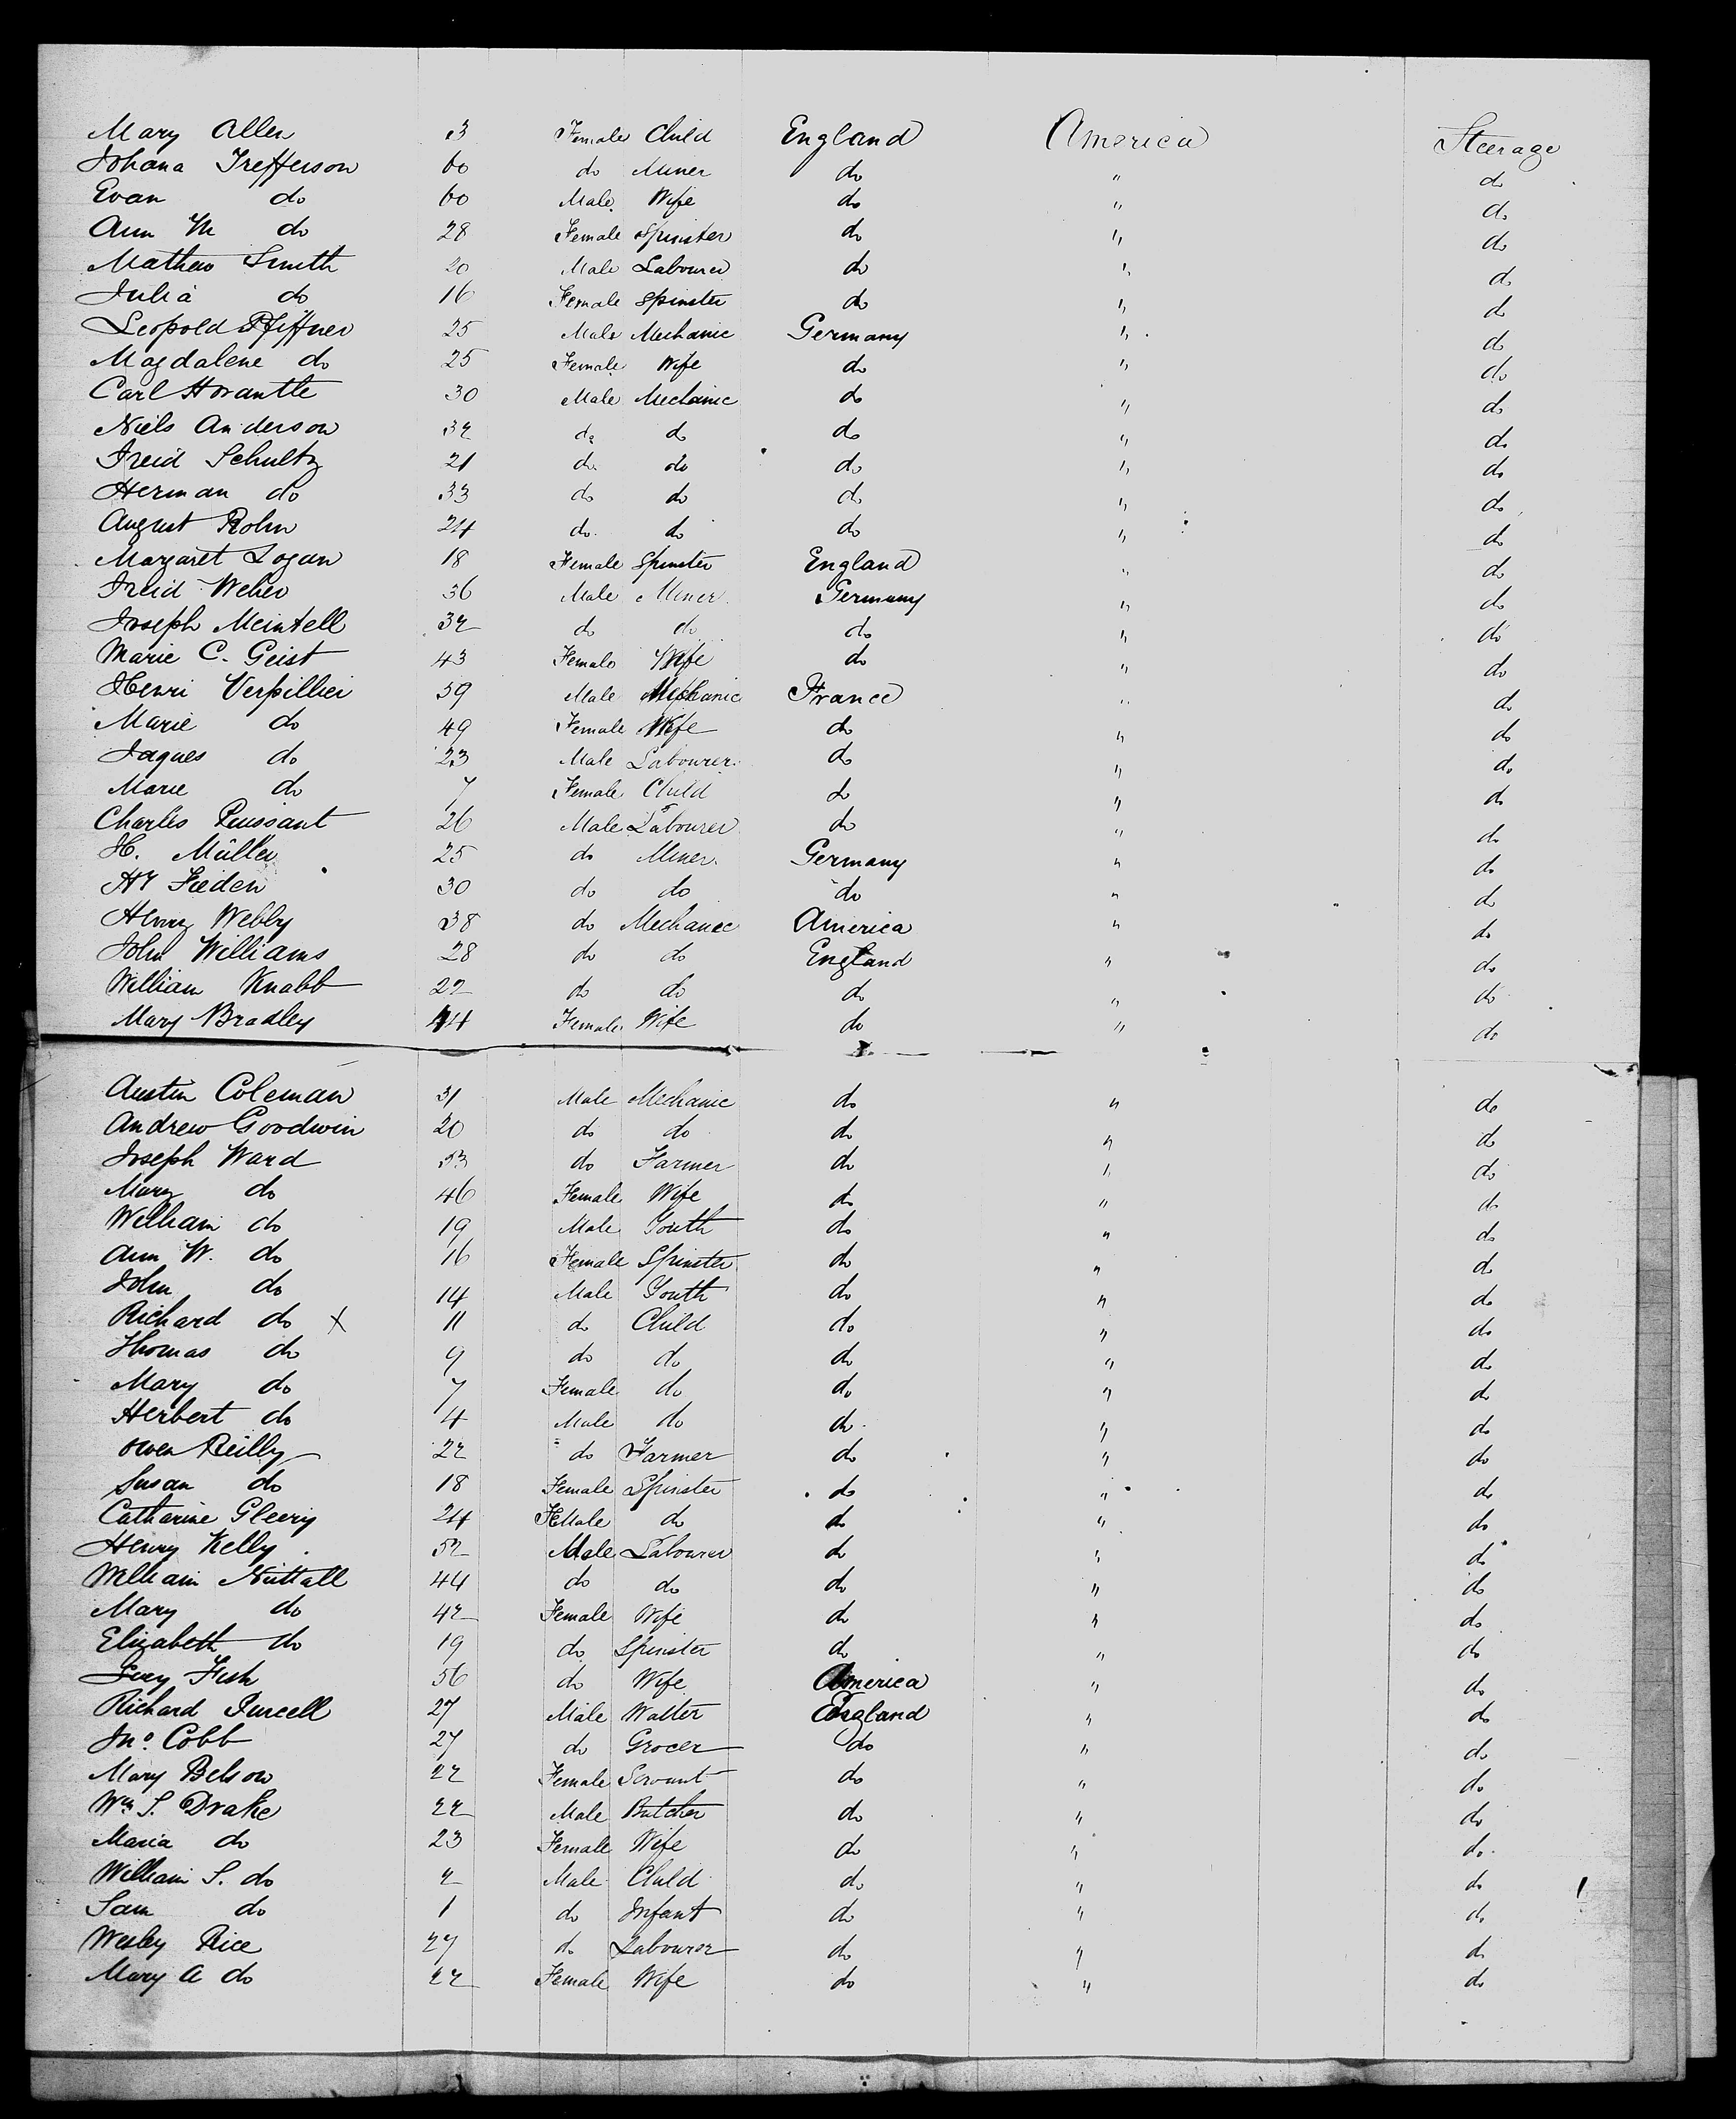 Mary Allen 3 Female Child England America Steerage
Johana Trefferson 60 do Miner do " do
Evan do 60 Male Wife do " do
Ann M do 28 Female Spinster do " do
Mathew Smith 20 Male Labourer do " do
Julia do 16 Female Spinster do " do
Leopold Pfiffner 25 Male Mechanic Germany " do
Magdalene do 25 Female Wife do " do
Carl 30 Male Mechanic do " do
Niels Anderson 32 do do do " do
Freid Schultz 21 do do do " do
Herman do 33 do do do " do
August Rohn 24 do do do " do
Margaret Logan 18 Female Spinster England " do
Freid Weber 36 Male Miner Germany " do
Joseph Meintell 32 do do do " do
Marie C. Geist 43 Female Wife do " do
Henri Verpillier 59 Male Mechanic France " do
Marie do 49 Female Wife do " do
Jaques do 23 Male Labourer do " do
Marie do 7 Female Child do " do
Charles Puissant 26 Male Labourer do " do
H. Müller 25 do Miner Germany " do
Hy Fieden 30 do do do " do
Henry Webby 38 do Mechanic America " do
John Williams 28 do do England " do
William Knabb 22 do do do " do
Mary Bradley 44 Female Wife do " do
Austin Coleman 31 Male Mechanic do " do
Andrew Goodwin 20 do do do " do
Joseph Ward 53 do Farmer do " do
Mary do 46 Female Wife do " do
William do 19 Male Youth do " do
Ann W. do 16 Female Spinster do " do
John do 14 Male Youth do " do
Richard do X 11 do Child do " do
Thomas do 9 do do do " do
Mary do 7 Female do do " do
Herbert do 4 Male do do " do
Owen Reilly 22 do Farmer do " do
Susan do 18 Female Spinster do " do
Catharine Gleery 24 Female do do " do
Henry Kelly 52 Male Labourer do " do
William Nuttall 44 do do do " do
Mary do 42 Female Wife do " do
Elizabeth do 19 do Spinster do " do
Fish 56 do Wife America " do
Richard Purcell 27 Male Waiter England " do
Jno. Cobb 27 do Grocer do " do
Mary Belson 22 Female Servant do " do
Wm S. Drake 22 Male Butcher do " do
Maria do 23 Female Wife do " do
William S. do 2 Male Child do " do
Sam do 1 do Infant do " do
Wesley Rice 27 do Labourer do " do
Mary A do 22 Female Wife do " do